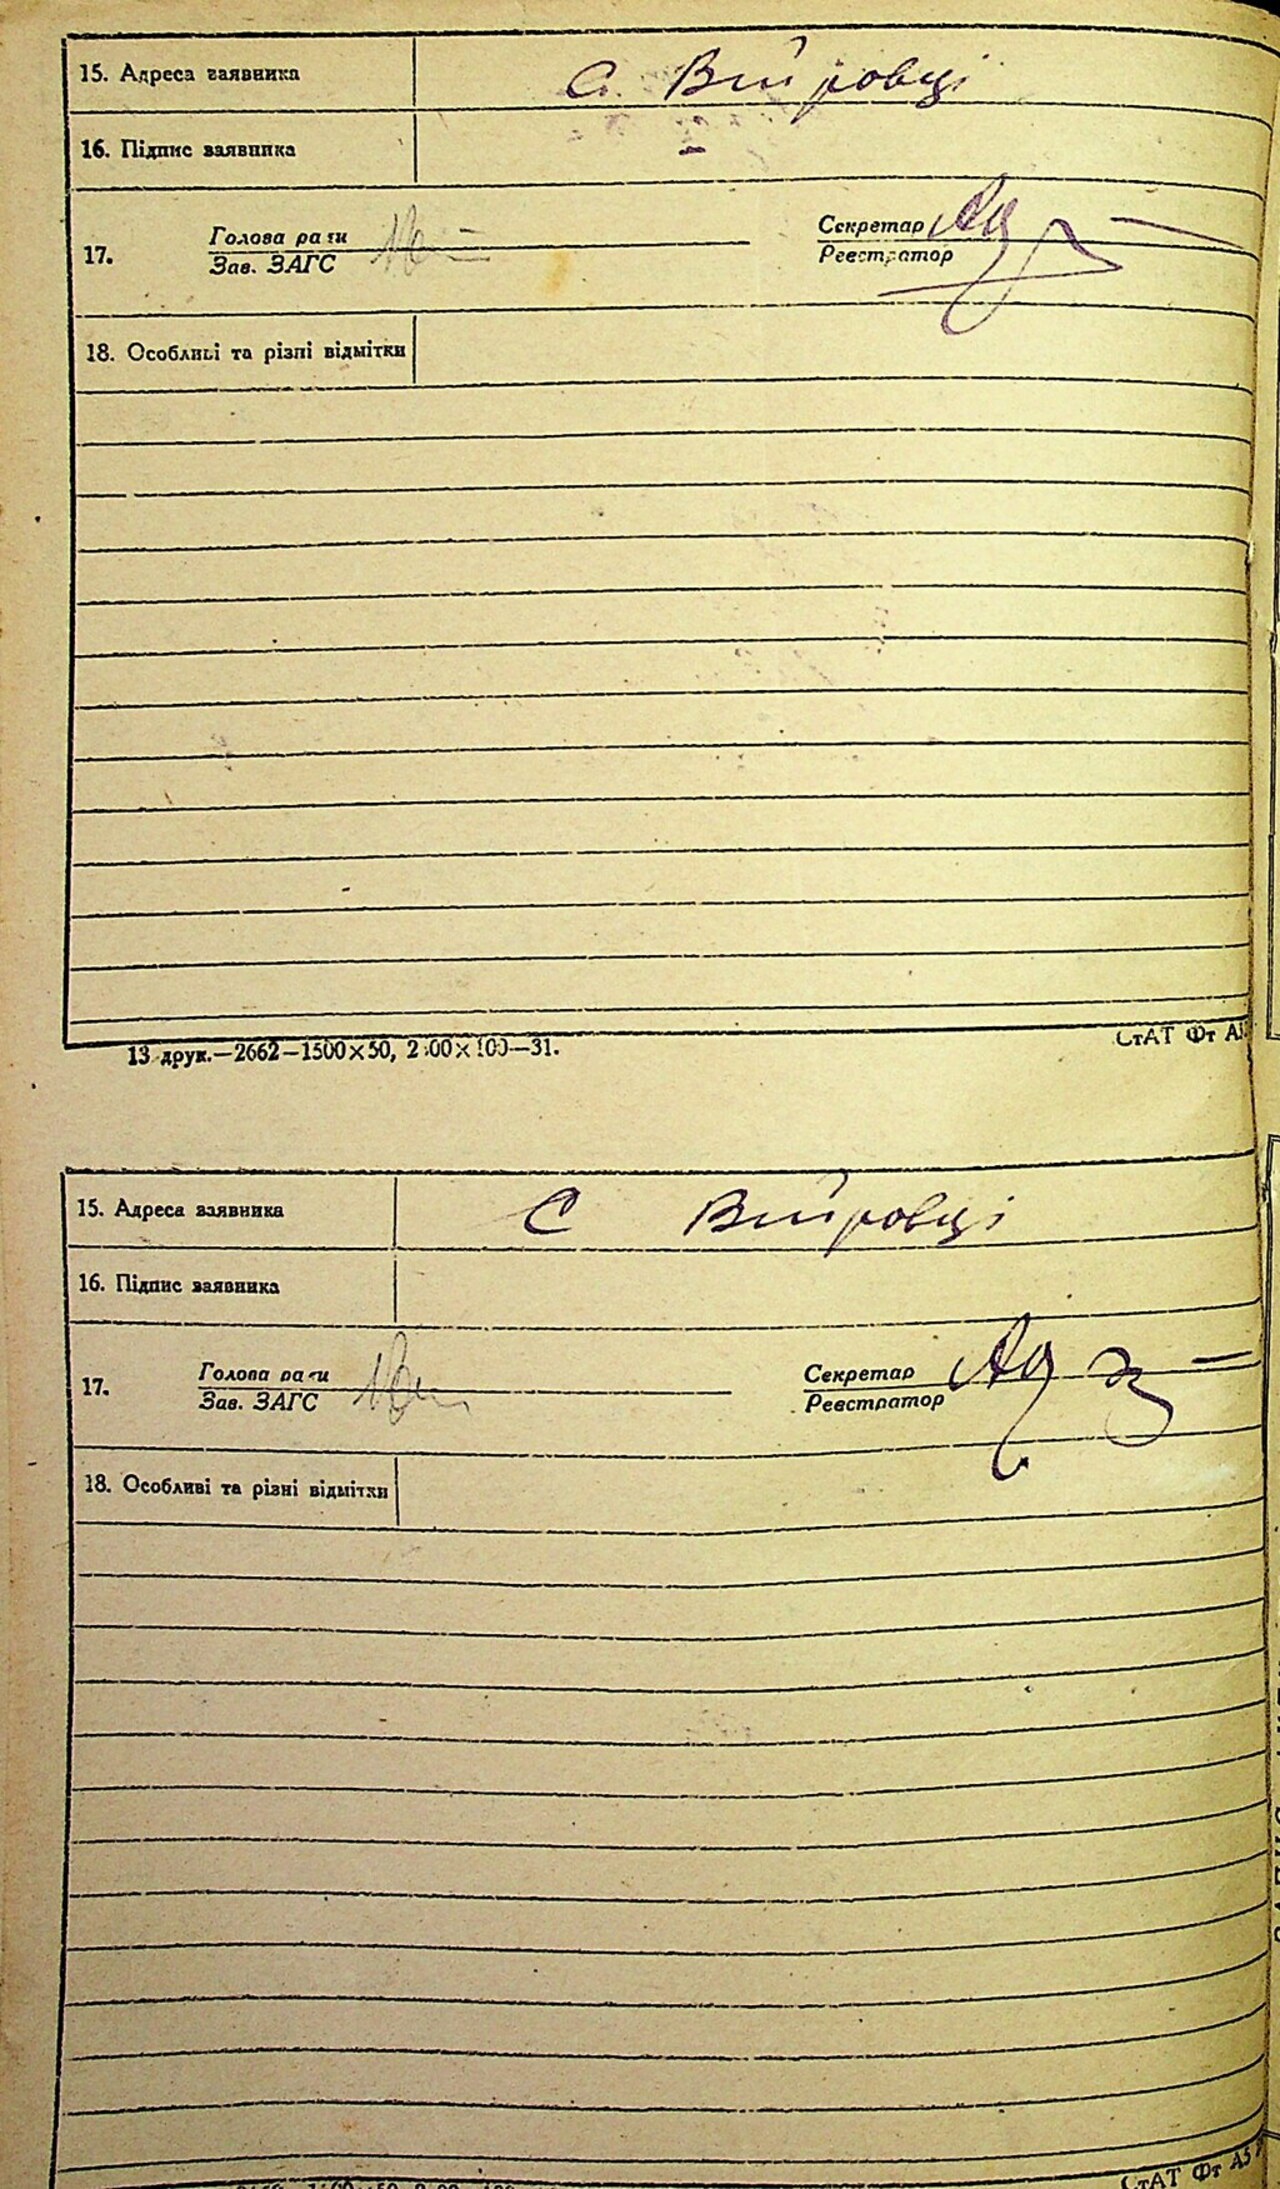 15. Адреса заявника С. Вітровці
16. Підпис заявника –
17. Голова ради Секретар
Зав. ЗАГС Реєстратор
18. Особливі та різні відмітки
13 друк.—2662—1500×50, 2 00×100—31.
СтАТ Фт А5
15. Адреса заявника С Вітровці
16. Підпис заявника
17. Голова ради Секретар
Зав. ЗАГС Реєстратор
18. Особливі та різні відмітки
СтАТ Фт А5